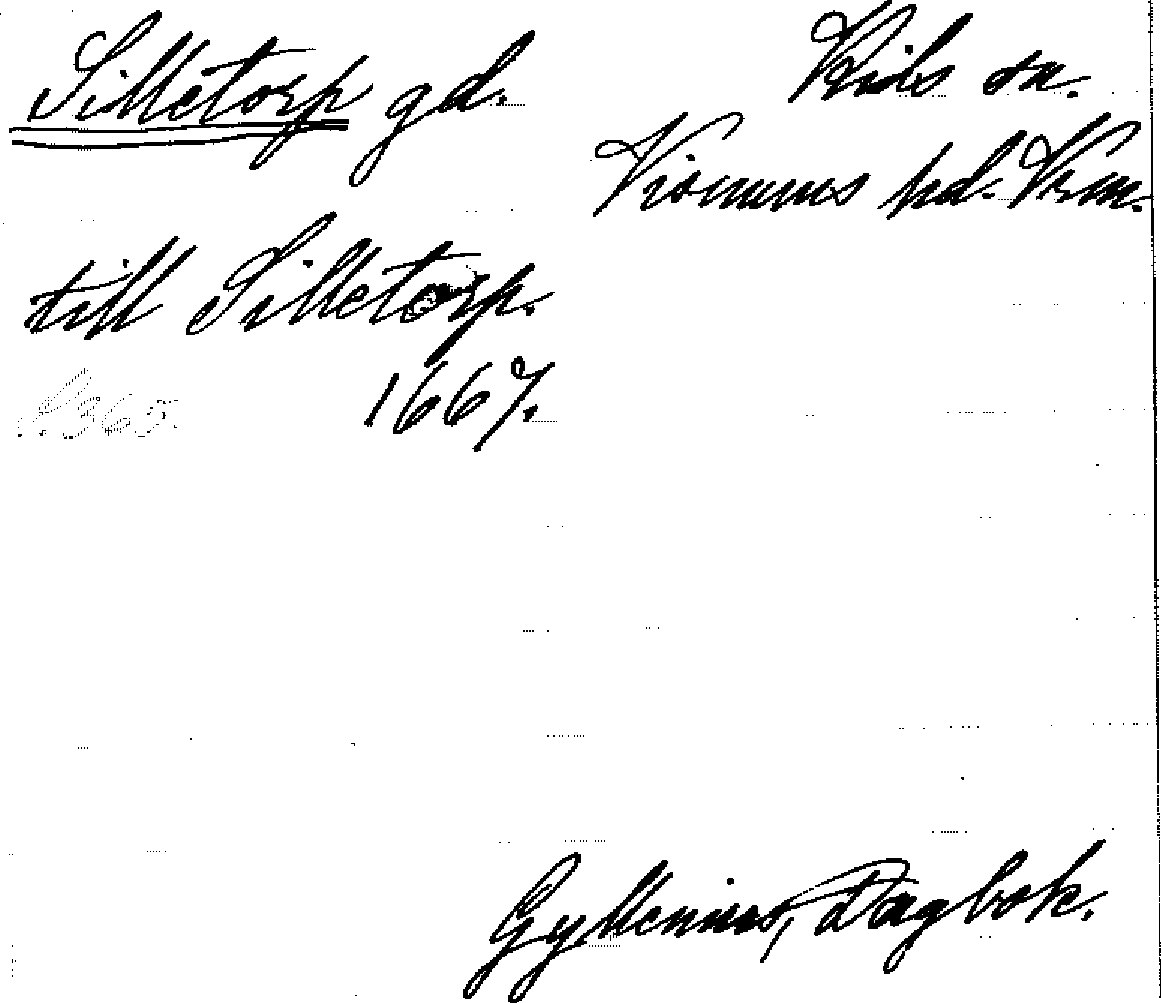 Silletorp gd.
Kils sn.
Visnums hd. Vrm.
till Silletorp.
S. 365. 1667.
Gyllenius, Dagbok.